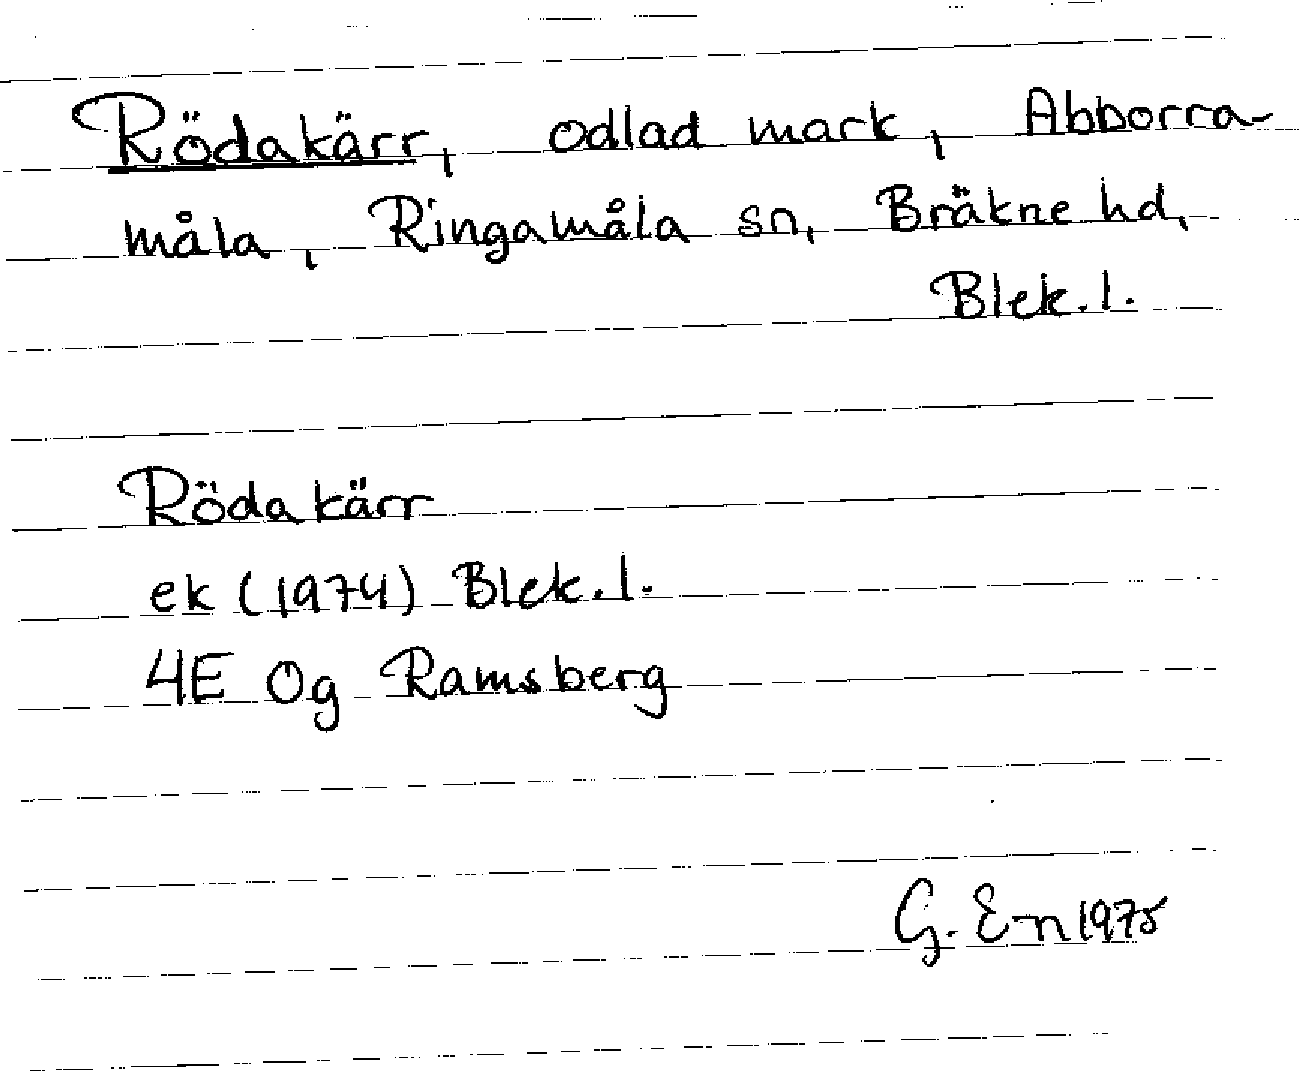 Rödakärr, odlad mark, Abborra-
måla, Ringamåla sn, Bräkne hd,
Blek. l.
Rödakärr
ek (1974) Blek. l.
4E 0g Ramsberg
G. En 1975